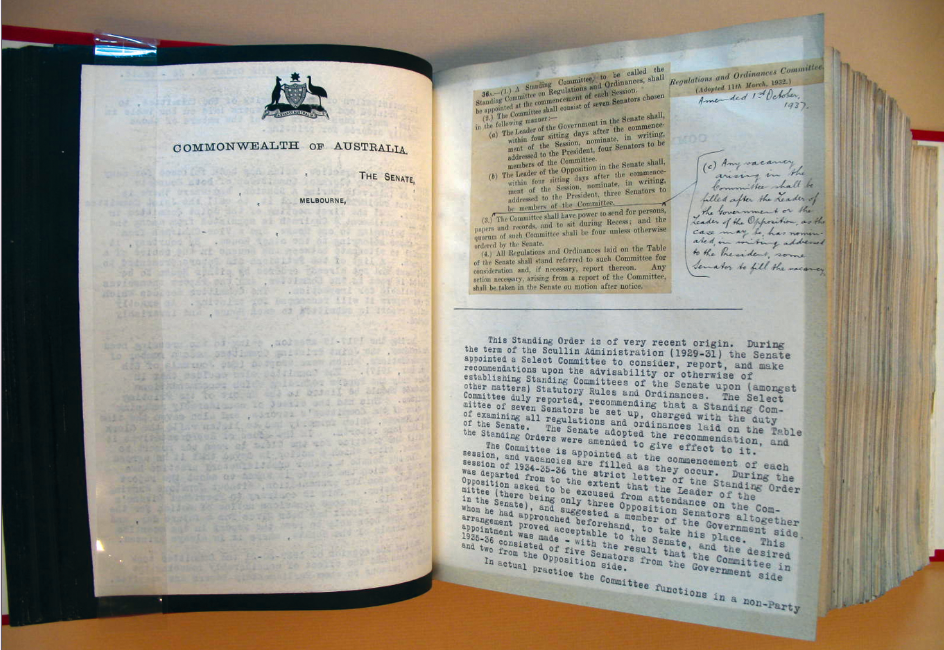 COMMONWEALTH OF AUSTRALIA.
THE SENATE,
MELBOURNE,
36A.—(1.) A Standing Committee, to be called the
Standing Committee on Regulations and Ordinances, shall
be appointed at the commencement of each Session.
(2.) The Committee shall consist of seven Senators chosen
in the following manner:—
(a) The Leader of the Government in the Senate shall,
within four sitting days after the commence-
ment of the Session, nominate, in writing,
addressed to the President, four Senators to be
members of the Committee.
(b) The Leader of the Opposition in the Senate shall,
within four sitting days after the commence-
ment of the Session, nominate, in writing,
addressed to the President, three Senators to
be members of the Committee.
(3.) The Committee shall have power to send for persons,
papers and records, and to sit during Recess; and the
quorum of such Committee shall be four unless otherwise
ordered by the Senate.
(4.) All Regulations and Ordinances laid on the Table
of the Senate shall stand referred to such Committee for
consideration and, if necessary, report thereon. Any
action necessary, arising from a report of the Committee,
shall be taken in the Senate on motion after notice.
Regulations and Ordinances Committee.
(Adopted 11th March, 1932.)
Amended 1st October,
1937.
(c) Any vacancy
arising in the
Committee shall be
filled after the Leader of
the Government or the
Leader of the Opposition, as the
case may be, has nomin-
ated, in writing addressed
to the President, some
Senator to fill the vacancy
This Standing Order is of very recent origin. During
the term of the Scullin Administration (1929-31) the Senate
appointed a Select Committee to consider, report, and make
recommendations upon the advisability or otherwise of
establishing Standing Committees of the Senate upon (amongst
other matters) Statutory Rules and Ordinances. The Select
Committee duly reported, recommending that a Standing Com-
mittee of seven Senators be set up, charged with the duty
of examining all regulations and ordinances laid on the Table
of the Senate. The Senate adopted the recommendation, and
the Standing Orders were amended to give effect to it.
The Committee is appointed at the commencement of each
session, and vacancies are filled as they occur. During the
session of 1934-35-36 the strict letter of the Standing Order
was departed from to the extent that the Leader of the
Opposition asked to be excused from attendance on the Com-
mittee (there being only three Opposition Senators altogether
in the Senate), and suggested a member of the Government side
whom he had approached beforehand, to take his place. This
arrangement proved acceptable to the Senate, and the desired
appointment was made - with the result that the Committee in
1935-36 consisted of five Senators from the Government side
and two from the Opposition side.
In actual practice the Committee functions in a non-Party